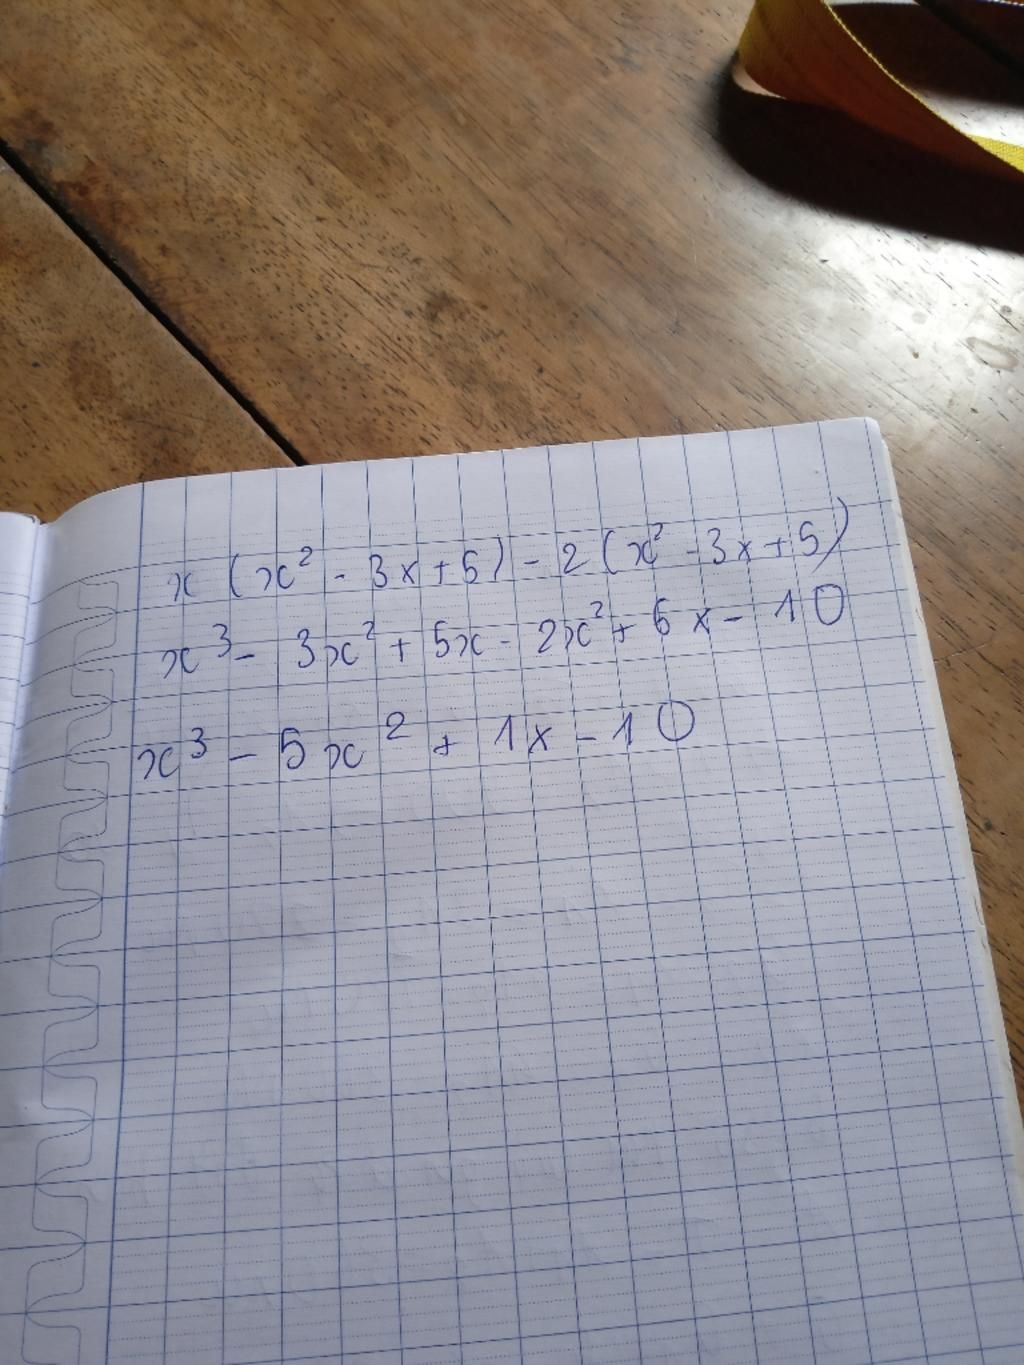 x (x² - 3x + 5) - 2 (x² - 3x + 5)
x³ - 3x² + 5x - 2x² + 6x - 10
x³ - 5x² + 1x - 10